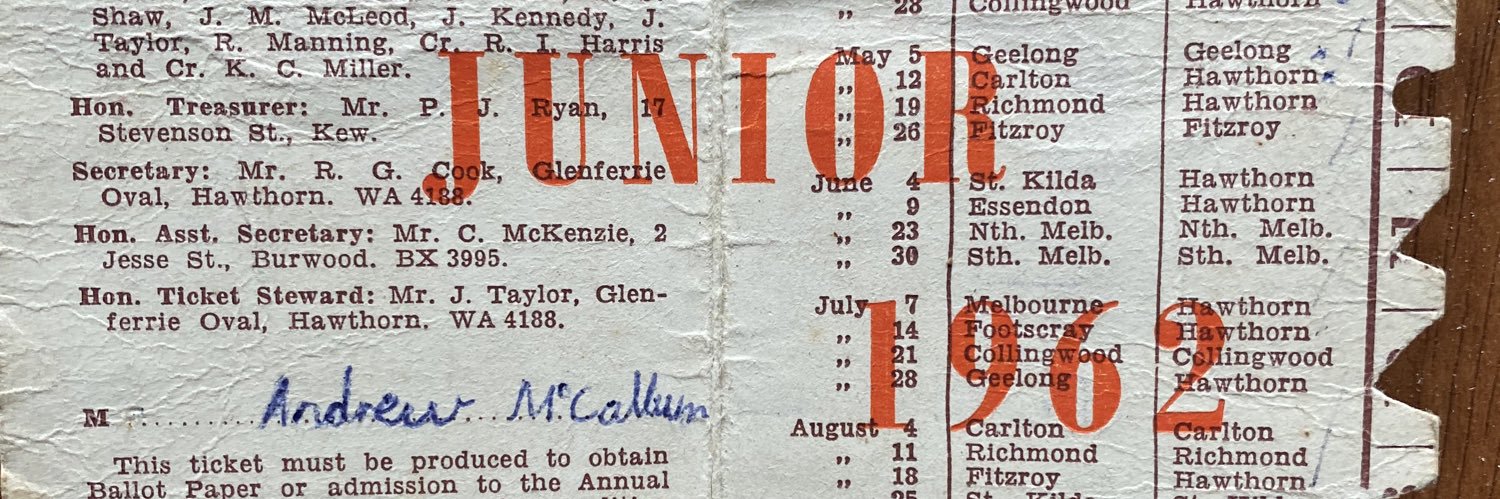 Shaw, J. M. McLeod, J. Kennedy, J.
Taylor, R. Manning, Cr. R. I. Harris
and Cr. K. C. Miller.
Hon. Treasurer: Mr. P. J. Ryan, 17
Stevenson St., Kew.
Secretary: Mr. R. G. Cook, Glenferrie
Oval, Hawthorn. WA 4188.
Hon. Asst. Secretary: Mr. C. McKenzie, 2
Jesse St., Burwood. BX 3995.
Hon. Ticket Steward: Mr. J. Taylor, Glen-
ferrie Oval, Hawthorn. WA 4188.
M ...... Andrew McCallum
This ticket must be produced to obtain
Ballot Paper or admission to the Annual
JUNIOR
1962
„ 28 Collingwood Hawthorn
May 5 Geelong Geelong
„ 12 Carlton Hawthorn
„ 19 Richmond Hawthorn
„ 26 Fitzroy Fitzroy
June 4 St. Kilda Hawthorn
„ 9 Essendon Hawthorn
„ 23 Nth. Melb. Nth. Melb.
„ 30 Sth. Melb. Sth. Melb.
July 7 Melbourne Hawthorn
„ 14 Footscray Hawthorn
„ 21 Collingwood Collingwood
„ 28 Geelong Hawthorn
August 4 Carlton Carlton
„ 11 Richmond Richmond
„ 18 Fitzroy Hawthorn
„ 25 St. Kilda St. Kilda